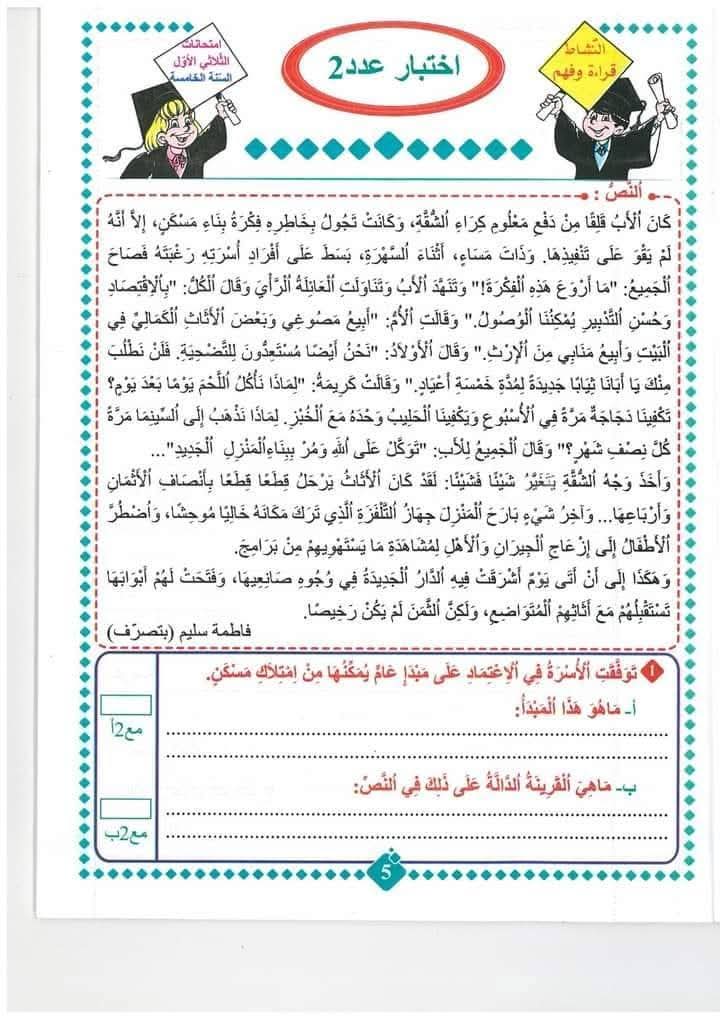 امتحانات
الثّلاثي الأوّل
السنة الخامسة
اختبار عدد2
النّشاط
قراءة وفهم
اَلنَّصُّ :
كَانَ اْلأَبُ قَلِقًا مِنْ دَفْعِ مَعْلُومِ كِرَاءِ اُلشُّقَّةِ، وَكَانَتْ تَجُولُ بِخَاطِرِهِ فِكْرَةُ بِنَاءِ مَسْكَنٍ، إِلاَّ أَنَّهُ
لَمْ يَقْوَ عَلَى تَنْفِيذِهَا. وَذَاتَ مَسَاءٍ، أَثْنَاءَ اُلسَّهْرَةِ، بَسَطَ عَلَى أَفْرَادِ أُسْرَتِهِ رَغْبَتَهُ فَصَاحَ
اَلْجَمِيعُ: "مَا أَرْوَعَ هَذِهِ اْلْفِكْرَةَ!" وَتَنَهَّدَ اْلأَبُ وَتَنَاوَلَتِ اْلْعَائِلَةُ اْلْرَّأْيَ وَقَالَ اْلْكُلُّ: "بِاْلاِقْتِصَادِ
وَحُسْنِ اُلتَّدْبِيرِ يُمْكِنُنَا اْلْوُصُولُ." وَقَالَتِ اْلأُمُّ: "أَبِيعُ مَصُوغِي وَبَعْضَ اْلأَثَاثِ اْلْكَمَالِيِّ فِي
اَلْبَيْتِ وَأَبِيعُ مَنَابِي مِنَ اْلإِرْثِ." وَقَالَ اْلأَوْلاَدُ: "نَحْنُ أَيْضًا مُسْتَعِدُّونَ لِلتَّضْحِيَةِ. فَلَنْ نَطْلُبَ
مِنْكَ يَا أَبَانَا ثِيَابًا جَدِيدَةً لِمُدَّةِ خَمْسَةِ أَعْيَادٍ." وَقَالَتْ كَرِيمَةُ: "لِمَاذَا نَأْكُلُ اْللَّحْمَ يَوْمًا بَعْدَ يَوْمٍ؟
تَكْفِينَا دَجَاجَةٌ مَرَّةً فِي اْلأُسْبُوعِ وَيَكْفِينَا اْلْحَلِيبُ وَحْدَهُ مَعَ اْلْخُبْزِ. لِمَاذَا نَذْهَبُ إِلَى اُلسِّينِمَا مَرَّةً
كُلَّ نِصْفِ شَهْرٍ؟" وَقَالَ اْلْجَمِيعُ لِلأَبِ: "تَوَكَّلْ عَلَى اللهِ وَمُرْ بِبِنَاءِ اْلْمَنْزِلِ اْلْجَدِيدِ"...
وَأَخَذَ وَجْهُ اُلشُّقَّةِ يَتَغَيَّرُ شَيْئًا فَشَيْئًا: لَقَدْ كَانَ اْلأَثَاثُ يَرْحَلُ قِطَعًا قِطَعًا بِأَنْصَافِ اْلأَثْمَانِ
وَأَرْبَاعِهَا... وَآخِرُ شَيْءٍ بَارَحَ اْلْمَنْزِلَ جِهَازُ اُلتَّلْفَزَةِ اُلَّذِي تَرَكَ مَكَانَهُ خَالِيًا مُوحِشًا، وَاُضْطُرَّ
اَلأَطْفَالُ إِلَى إِزْعَاجِ اْلْجِيرَانِ وَاْلأَهْلِ لِمُشَاهَدَةِ مَا يَسْتَهْوِيهِمْ مِنْ بَرَامِجَ.
وَهَكَذَا إِلَى أَنْ أَتَى يَوْمٌ أَشْرَقَتْ فِيهِ اُلدَّارُ اْلْجَدِيدَةُ فِي وُجُوهِ صَانِعِيهَا، وَفَتَحَتْ لَهُمْ أَبْوَابَهَا
تَسْتَقْبِلُهُمْ مَعَ أَثَاثِهِمُ اْلْمُتَوَاضِعِ، وَلَكِنَّ اُلثَّمَنَ لَمْ يَكُنْ رَخِيصًا.
فاطمة سليم (بتصرّف)
1 تَوَفَّقَتِ اْلأُسْرَةُ فِي اْلاِعْتِمَادِ عَلَى مَبْدَإٍ عَامٍّ يُمَكِّنُهَا مِنْ اِمْتِلاَكِ مَسْكَنٍ.
أ- مَاهُوَ هَذَا اْلْمَبْدَأُ:
مع2أ
ب- مَاهِيَ اْلْقَرِينَةُ اُلدَّالَّةُ عَلَى ذَلِكَ فِي اُلنَّصِّ:
مع2ب
5